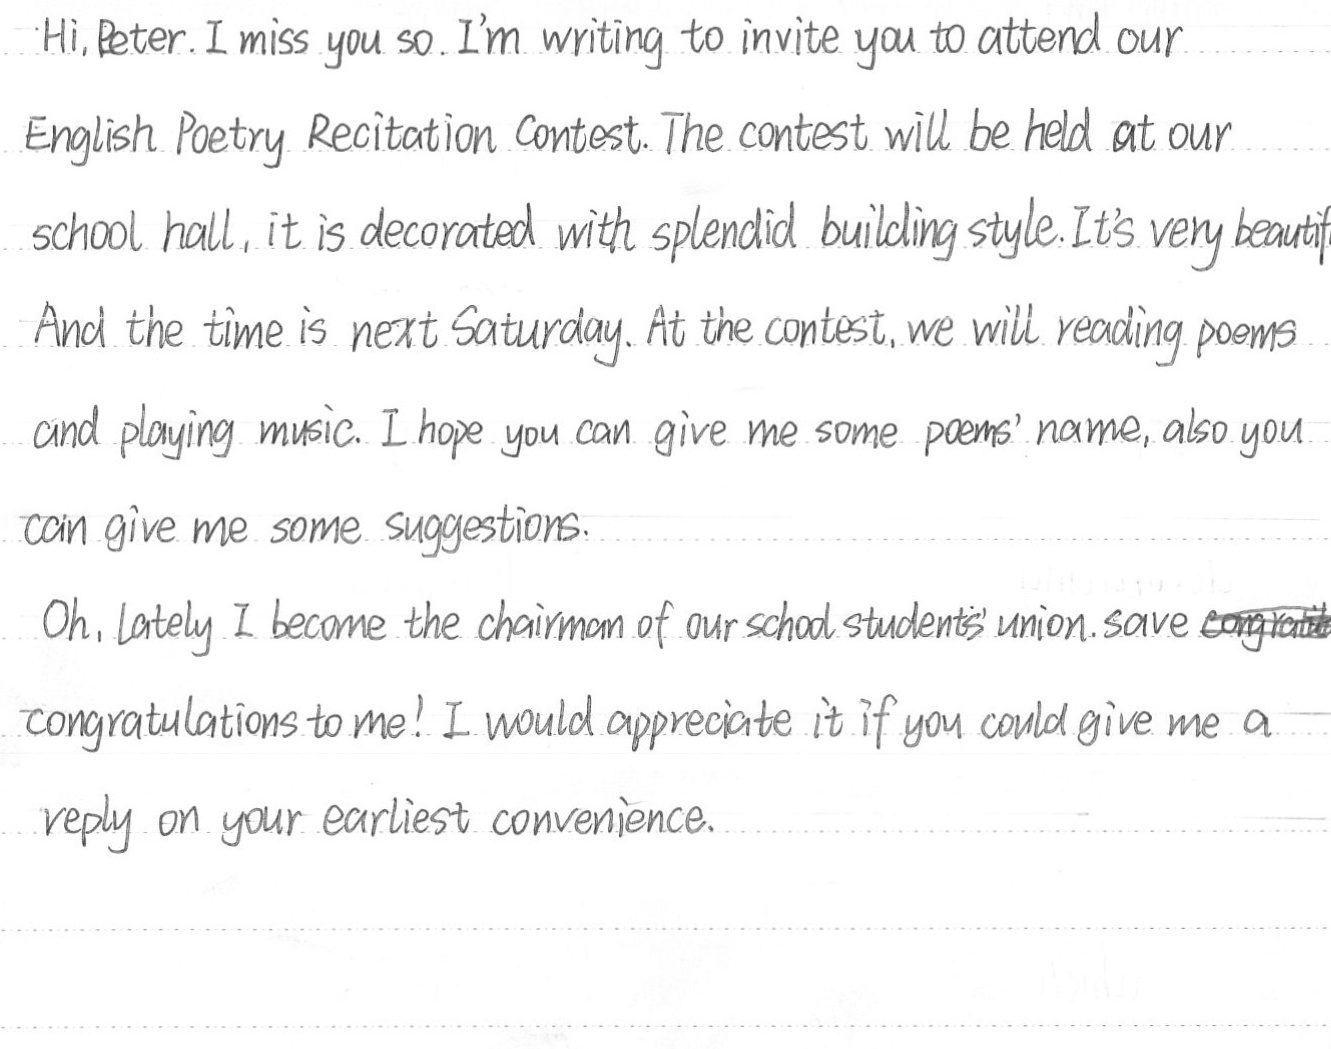 Hi, Peter. I miss you so. I'm writing to invite you to attend our
English Poetry Recitation Contest. The contest will be held at our
school hall, it is decorated with splendid building style. It's very beautif
And the time is next Saturday. At the contest, we will reading poems
and playing music. I hope you can give me some poems' name, also you
can give me some suggestions.
Oh, Lately I become the chairman of our school students' union. save
congratulations to me! I would appreciate it if you could give me a
reply on your earliest convenience.